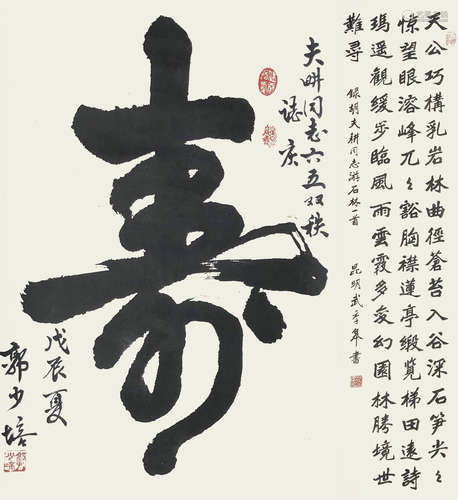 天公巧構乳岩林曲徑蒼苔入谷深石笋尖々
惊望眼溶峰兀々豁胸襟蓮亭覽梯田遠詩
瑪遥觀緩步臨風雨雲霞多变幻園林勝境世
難尋
録胡夫耕同志游石林一首
昆明武皋書
夫畊同志六五双秩
誌庆
寿
戊辰夏
郭少培